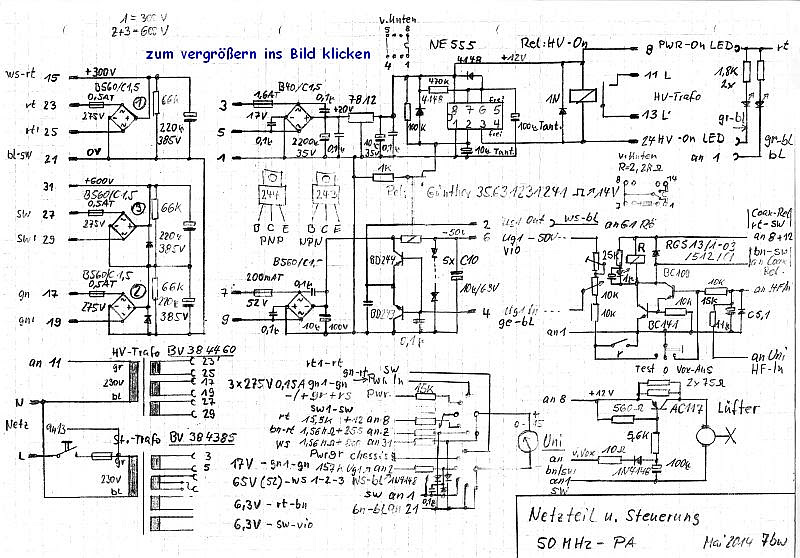 1 = 300V
2+3 = 600V
zum vergrößern ins Bild klicken
v. Unten
5 8
4 1
NE 555
+12V
Rel: HV-On
8 PWR-On LED
rt
11 L
HV-Trafo
13 L'
24 HV-On LED
gr-bl
bl
an 1
1,8K
2x
gr-bl
ws-rt 15
+300V
B560/C1,5
rt 23
0,5AT
275V
1
66K
220µ
385V
rt1 25
bl-sw 21
0V
31
+600V
B560/C1,5
sw 27
0,5AT
275V
3
66K
220µ
385V
sw1 29
B560/C1,5
gn 17
0,5AT
275V
2
66K
220µ
385V
gn1 19
B40/C1,5
3
1,6AT
17V
0,1µ
5
1
2200µ
35V
0,1µ
+20V
7812
10µ
35V
0,1µ
100K
470K
4148
4148
8 7 6 5
1 2 3 4
frei
frei
100µ Tant.
10µ Tant.
1N
1K
Rel.: Günther 3563 1231 241 14V
v. Unten
R=2,2KΩ
8 14
244
B C E
PNP
243
B C E
NPN
B560/C1,5
7
200mAT
52V
0,1µ
9
0,1µ
10µ
100V
BD244
BD243
-50V
5x
C10
10µ/63V
0,1µ
2 Ug1 Out
ws-bl
6 Ug1 -50V
vio
4 Ug1 In
ge-bl
an G1 Rt
25K
10K
10K
R
1K
RGS13/1-03
BC109
BC141
10K
10K
15K
C5,1
an1
r
Test o Vox-Aus
Coax-Rel
rt-sw
an 8+12
bn-sw
an Coax
Rel.
an HF In
an Uni
HF-In
an 11
HV-Trafo BV 384460
gr
230V
bl
23
25
17
19
27
29
3x275V 0,15A
rt1-rt
gn1-gn
-/+ gr+rs
sw1-sw
N
Netz
L
an13
St.-Trafo BV 384385
gr
230V
bl
3
5
17V - gn1-gn
65V (52) - ws 1-2-3
6,3V - rt-bn
6,3V - sw-vio
gn-rt
sw
Pwr In
Pwr.
15K
rt 15,5K +12 an 8
bn-rt 1,56MΩ+255 an 2
ws 1,56MΩ an 31
Pwrgr chassis
157K Ug1 an 2
ws-bl 1N4148
sw an 1
bn-bl an 21
0,1µ
+
15
0-
Uni
an 8
+12V
2x 75Ω
560Ω
AC117
Lüfter
5,6K
an
bn/sw
r.Vox
10Ω
1N4148
100µ
an1
sw
Netzteil u. Steuerung
50 MHz - PA
Mai 2014 7bw